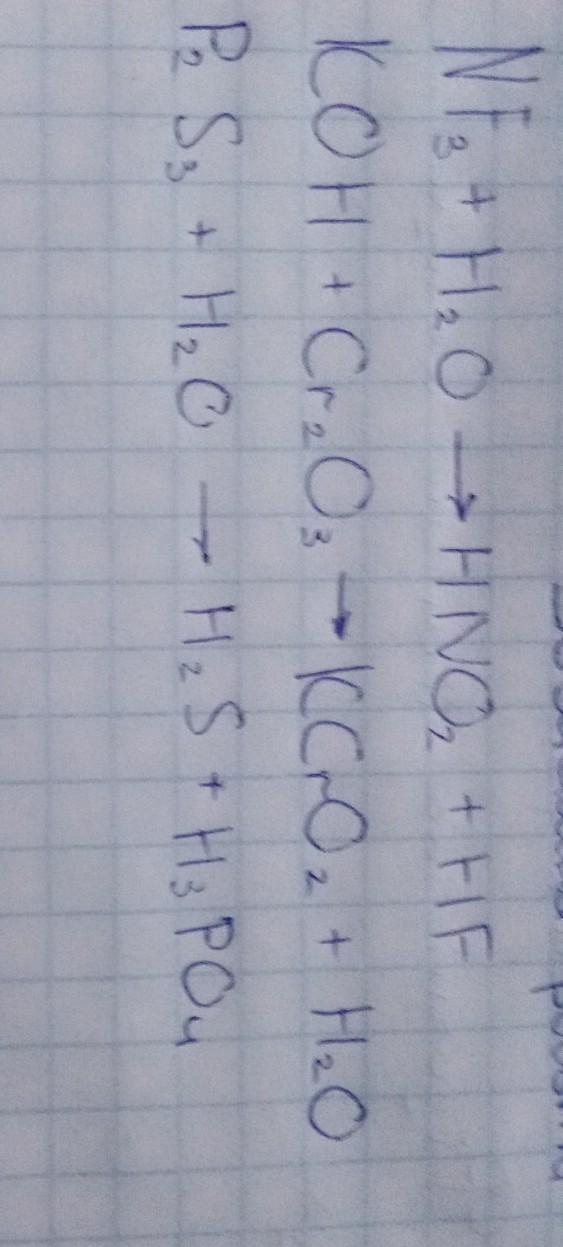 NF₃ + H₂O → HNO₂ + HF
KOH + Cr₂O₃ → KCrO₂ + H₂O
P₂S₃ + H₂O → H₂S + H₃PO₄